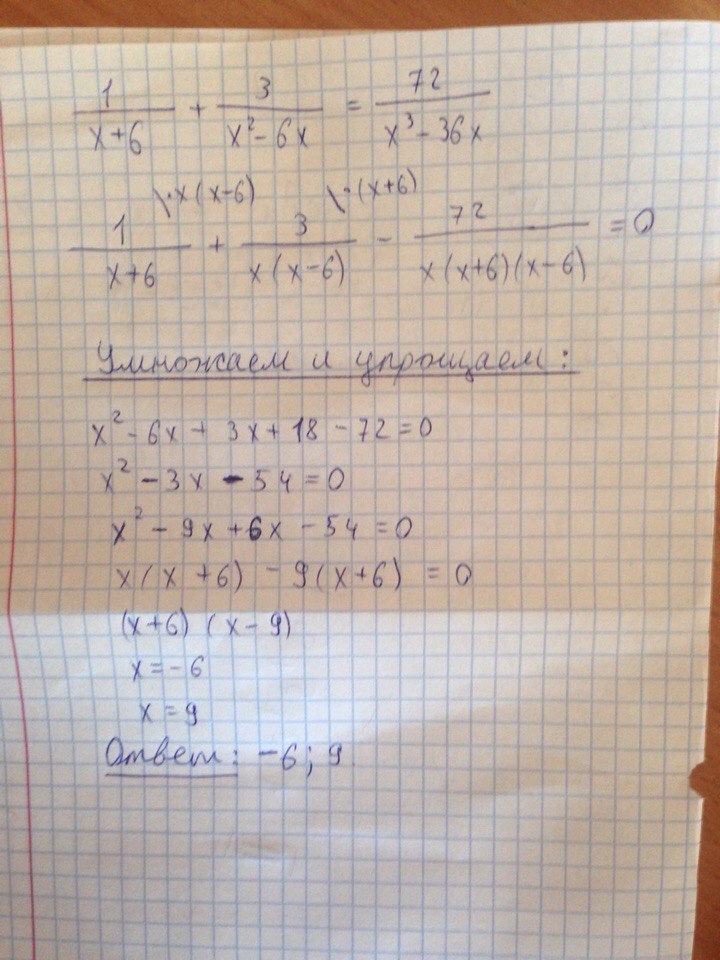 1/(x+6) + 3/(x²-6x) = 72/(x³-36x)
\·x(x-6) \·(x+6)
1/(x+6) + 3/(x(x-6)) - 72/(x(x+6)(x-6)) = 0
Умножаем и упрощаем:
x²-6x+3x+18-72=0
x²-3x-54=0
x²-9x+6x-54=0
x(x+6)-9(x+6)=0
(x+6)(x-9)
x=-6
x=9
Ответ: -6; 9